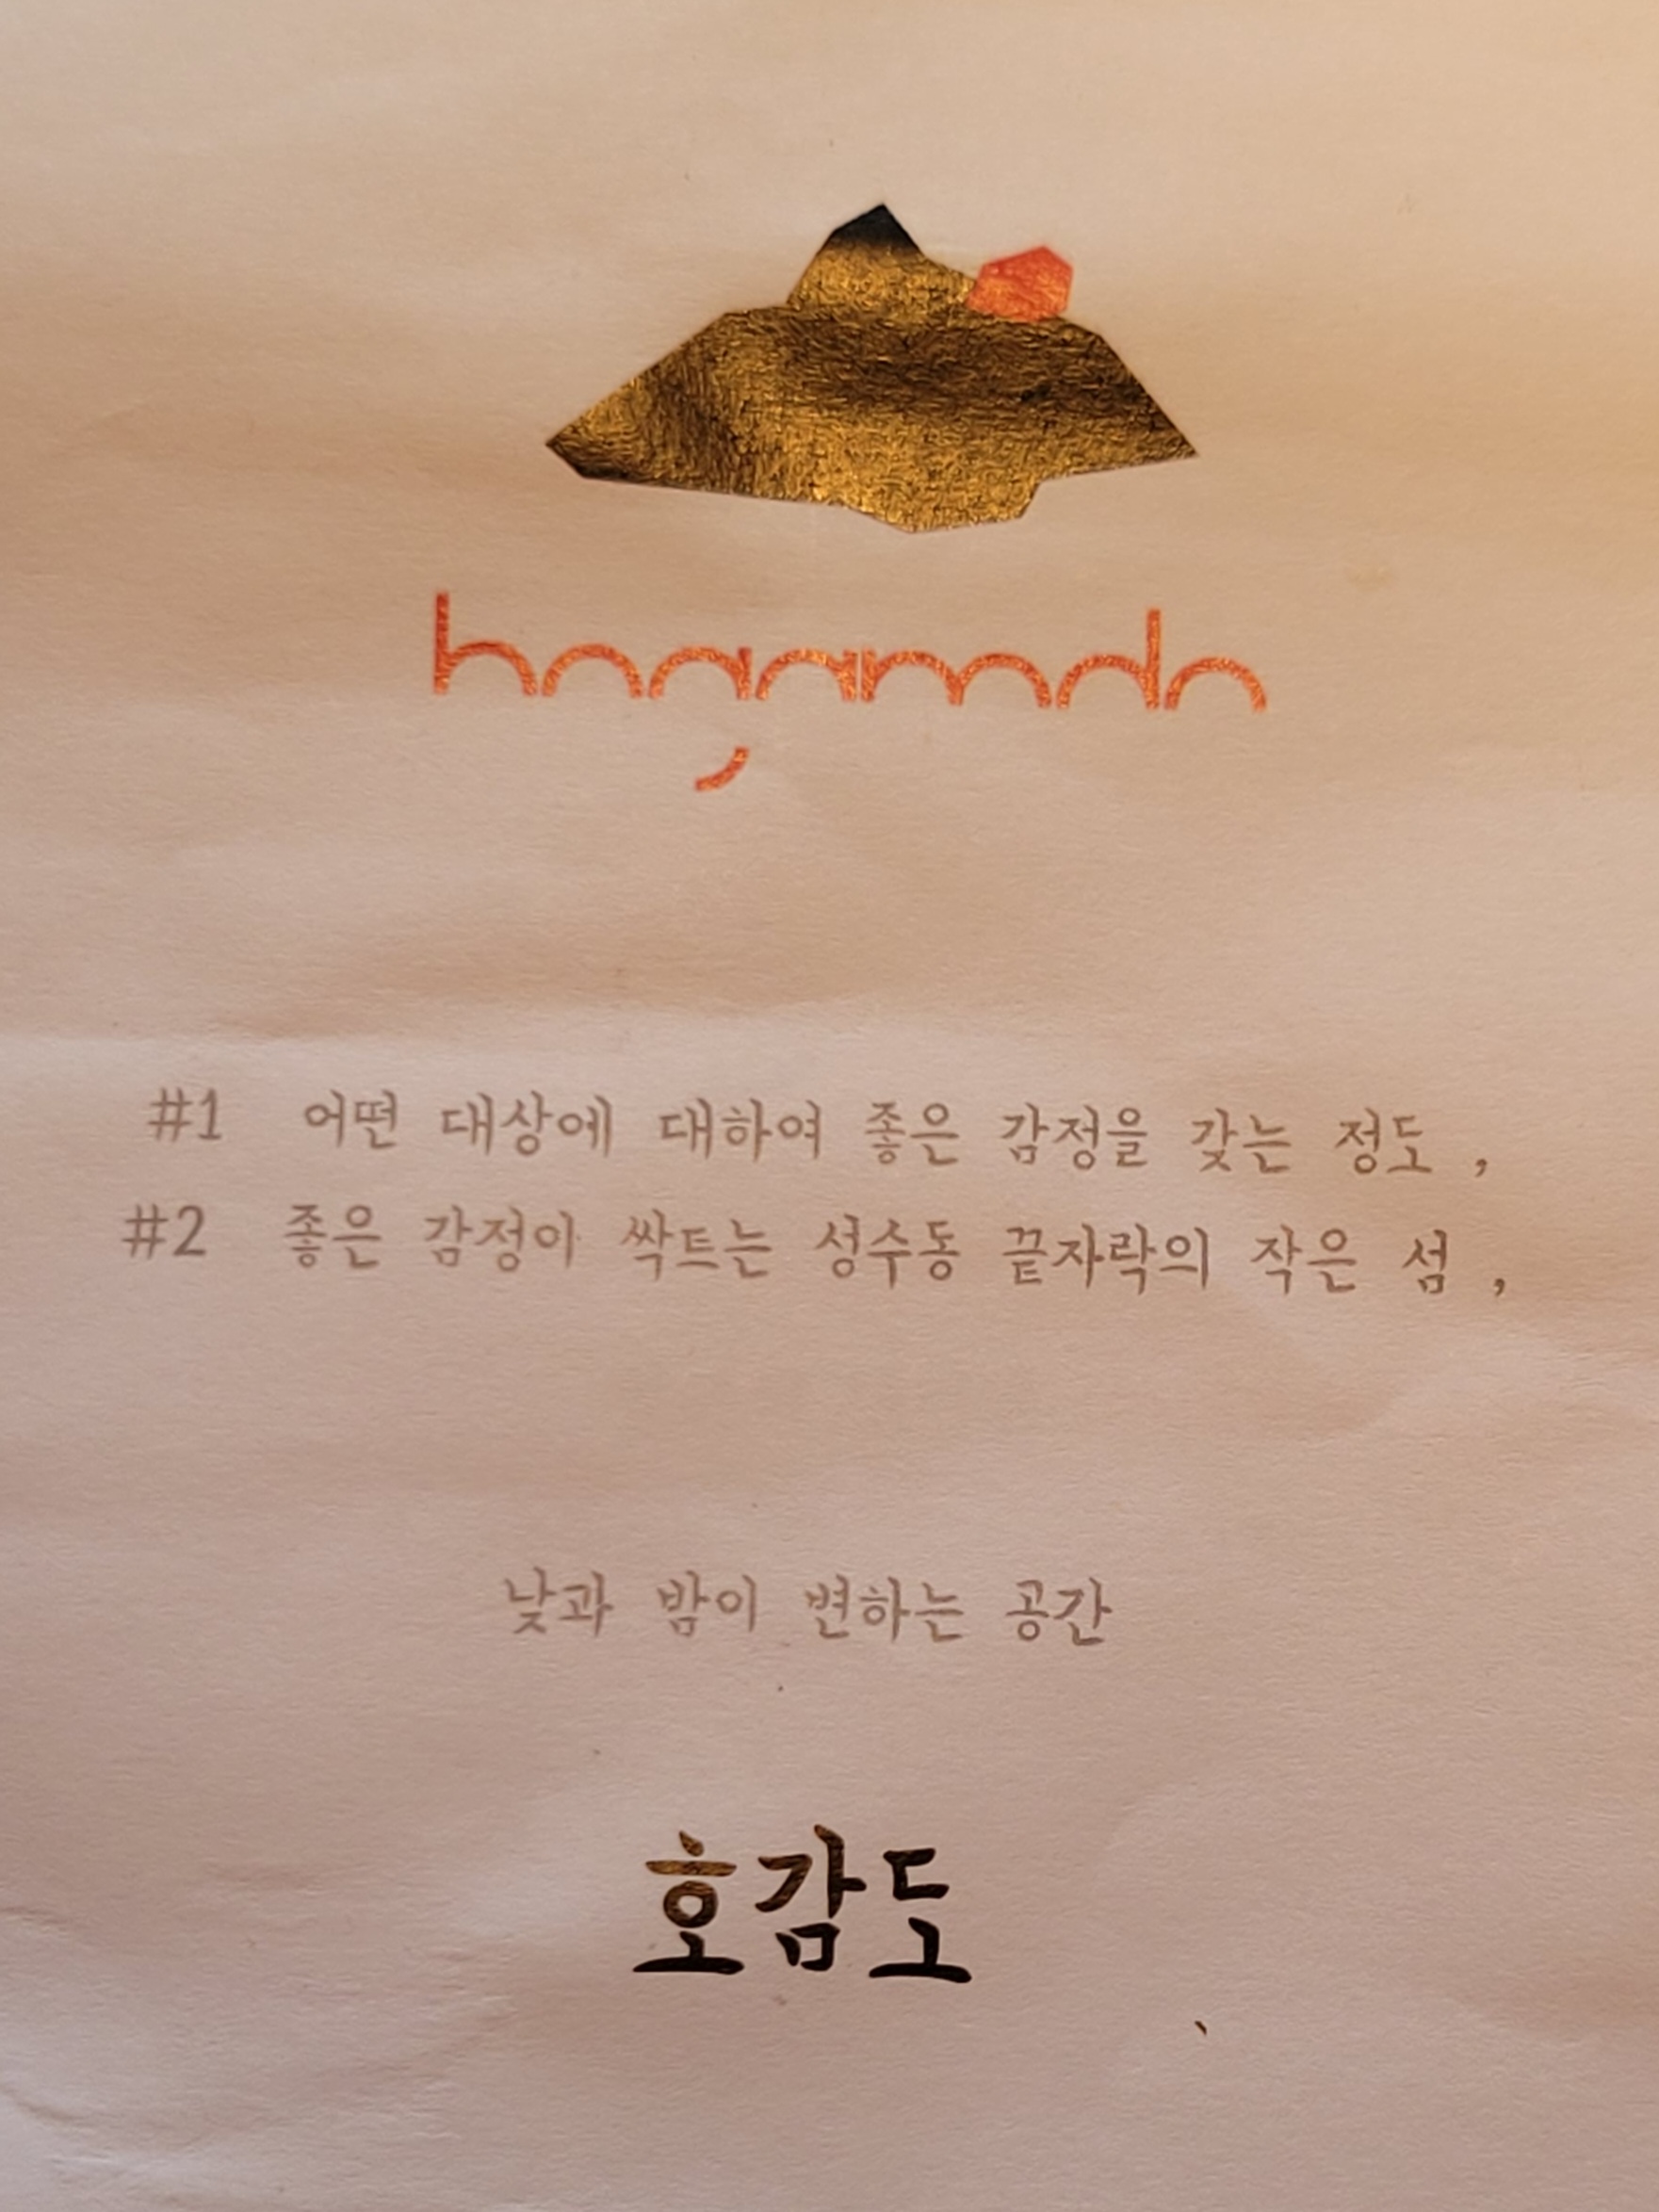 hogamdo
#1 어떤 대상에 대하여 좋은 감정을 갖는 정도 ,
#2 좋은 감정이 싹트는 성수동 끝자락의 작은 섬 ,
낮과 밤이 변하는 공간
호감도